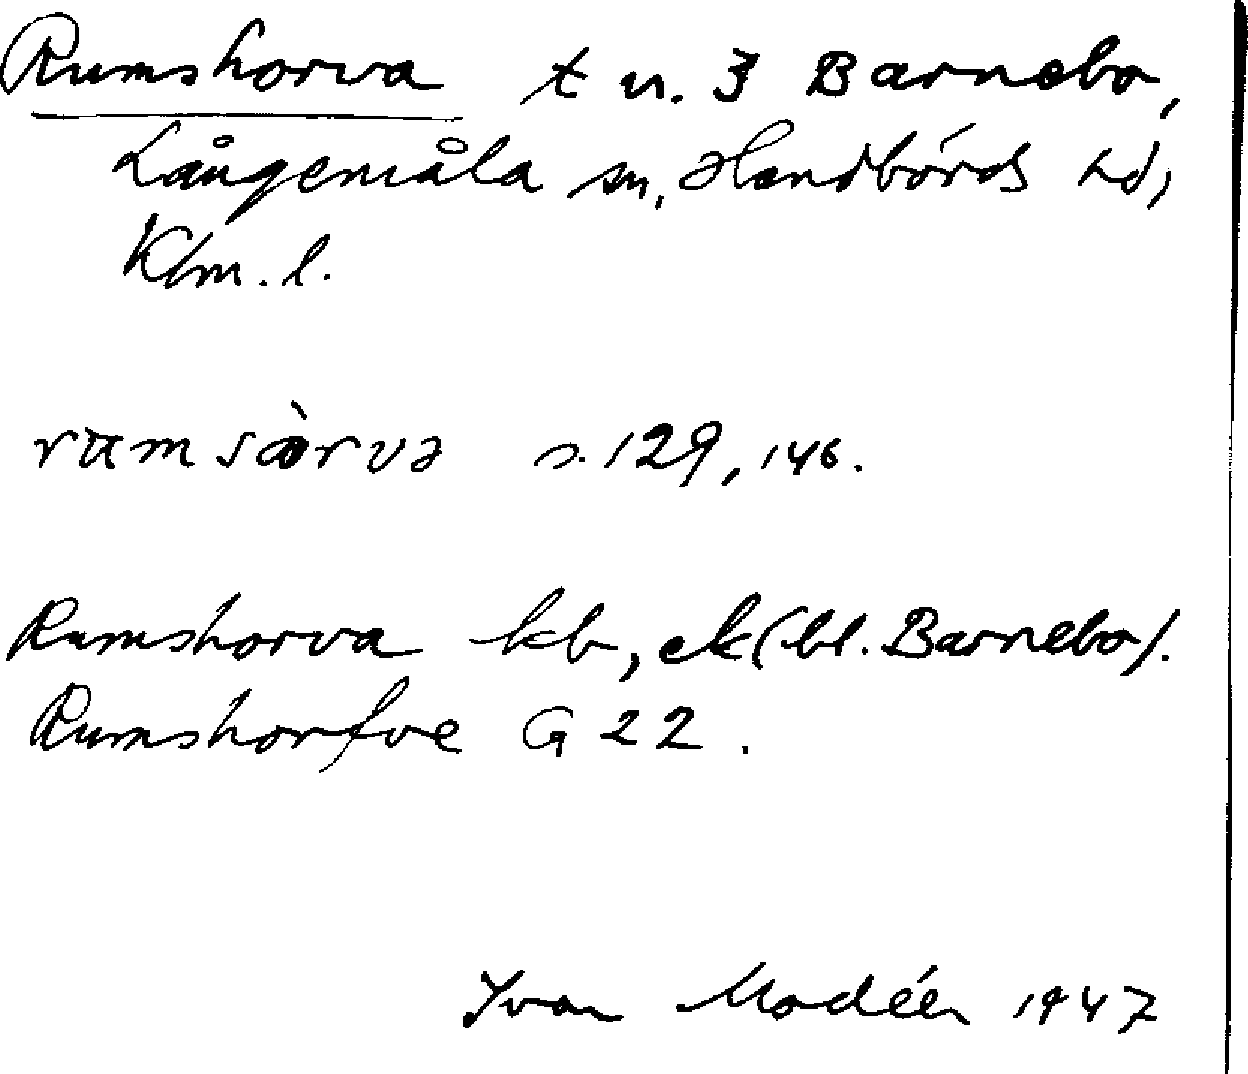 Rumshorva t u. 3 Barnebo,
Långemåla sn, Handbörds hd,
Klm. l.
s. 129, 146.
Rumshorva kb, ek (bl. Barnebo).
Rumshorfve G 22.
Yvar Modéer 1947